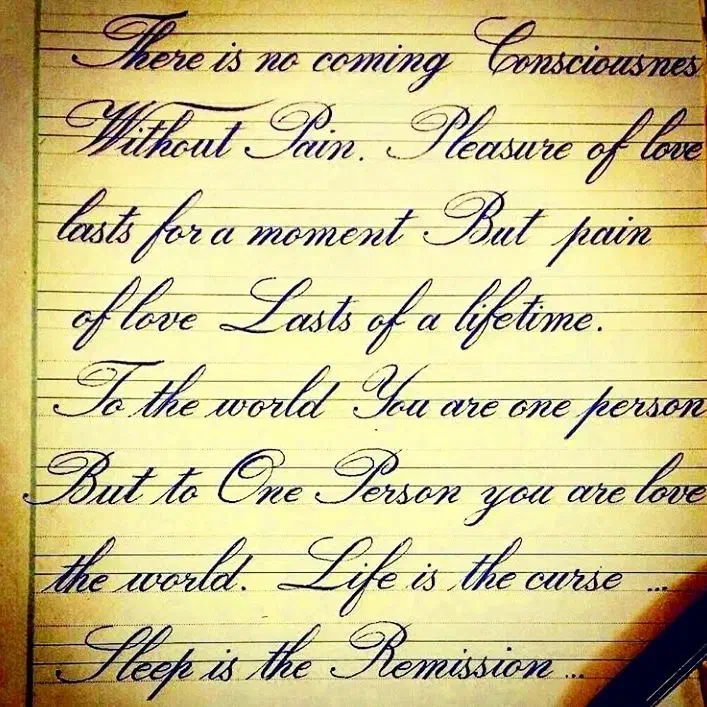 There is no coming Consciousnes
Without Pain. Pleasure of love
lasts for a moment But pain
of love Lasts of a lifetime.
To the world You are one person
But to One Person you are love
the world. Life is the curse ...
Sleep is the Remission...